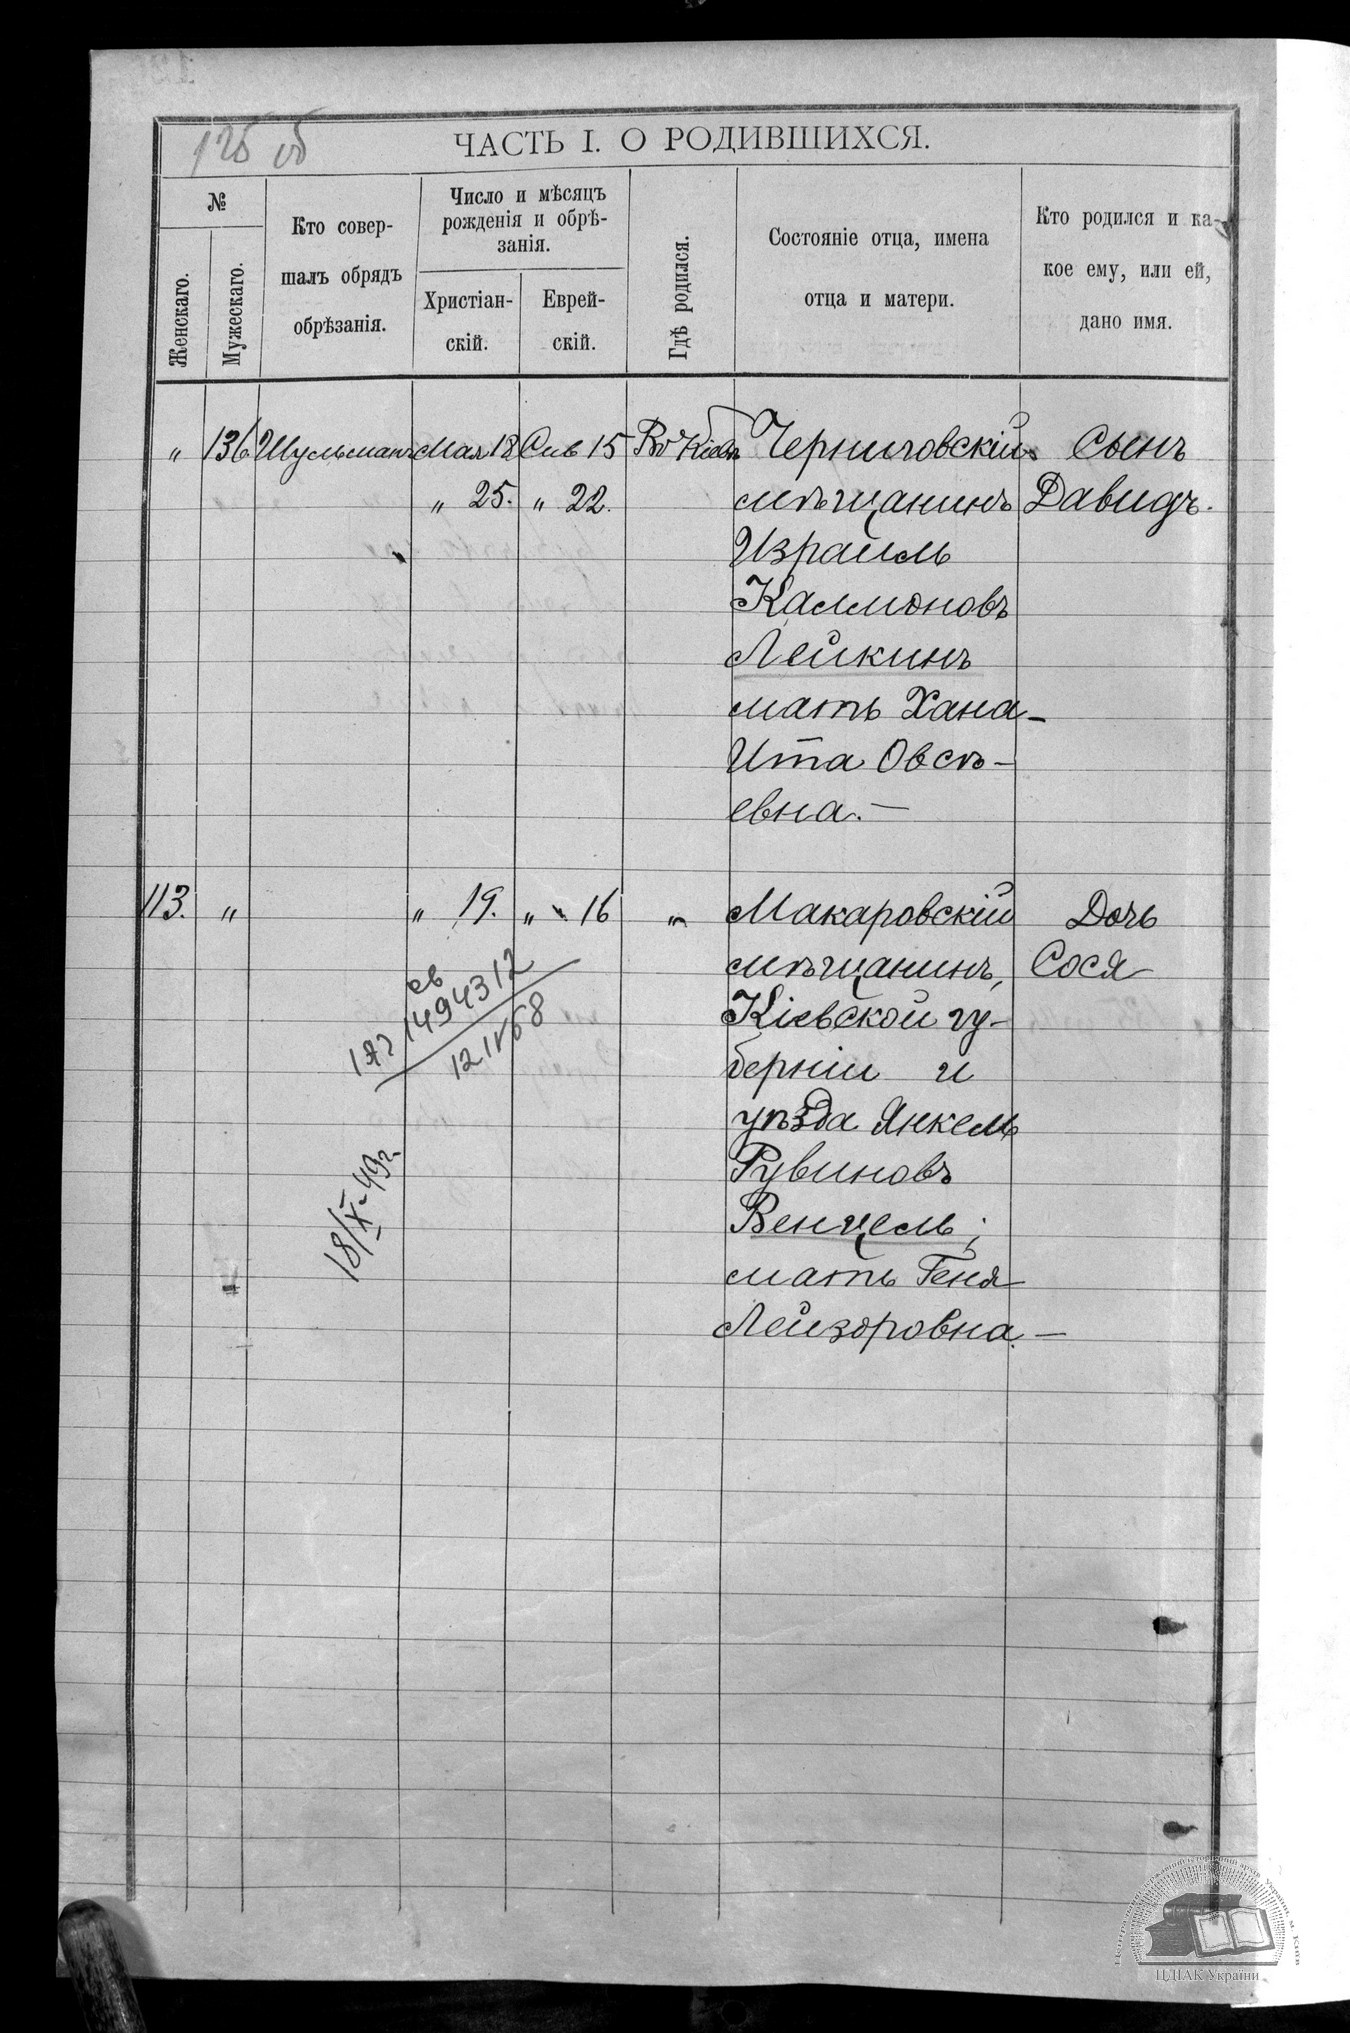 126 об
ЧАСТЬ I. О РОДИВШИХСЯ.
№
Женскаго.
Мужескаго.
Кто совер-
шалъ обрядъ
обрѣзанія.
Число и мѣсяцъ
рожденія и обрѣ-
занія.
Христіан-
скій.
Еврей-
скій.
Гдѣ родился.
Состояніе отца, имена
отца и матери.
Кто родился и ка-
кое ему, или ей,
дано имя.
„ 136 Шульманъ Мая 18 Сив 15 Въ Кіевѣ Черниговскій Сынъ
„ 25. „ 22. мѣщанинъ Давидъ.
Израиль
Калмоновъ
Лейкинъ
мать Хана-
Ита Овсѣ-
евна.—
113. „ „ 19. „ 16 „ Макаровскій Дочь
мѣщанинъ, Сося
Кіевской гу-
берніи и
уѣзда Янкель
Рувиновъ
Венцель;
мать Геня
Лейзоровна.—
св
1494312
18/IX-49г.
ЦДІАК України